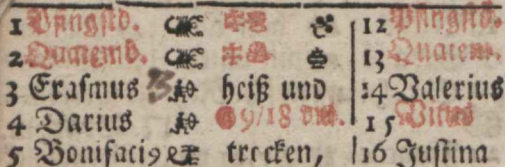 1 Pfingstd. 12 Pfingstd.
2 Quatemb. 13 Quatem.
3 Erasmus heiß und 14 Valerius
4 Darius 9/18 15 Vitus
5 Bonifaci9 trocken, 16 Justina